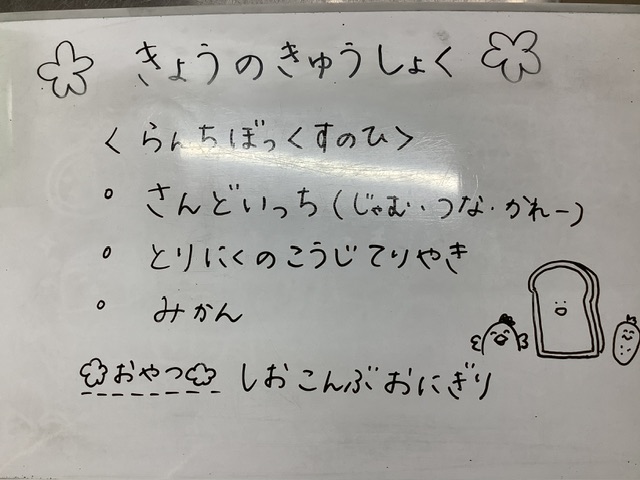 きょうのきゅうしょく
〈らんちぼっくすのひ〉
◦ さんどいっち(じゃむ・つな・かれー)
◦ とりにくのこうじてりやき
◦ みかん
おやつ しおこんぶおにぎり